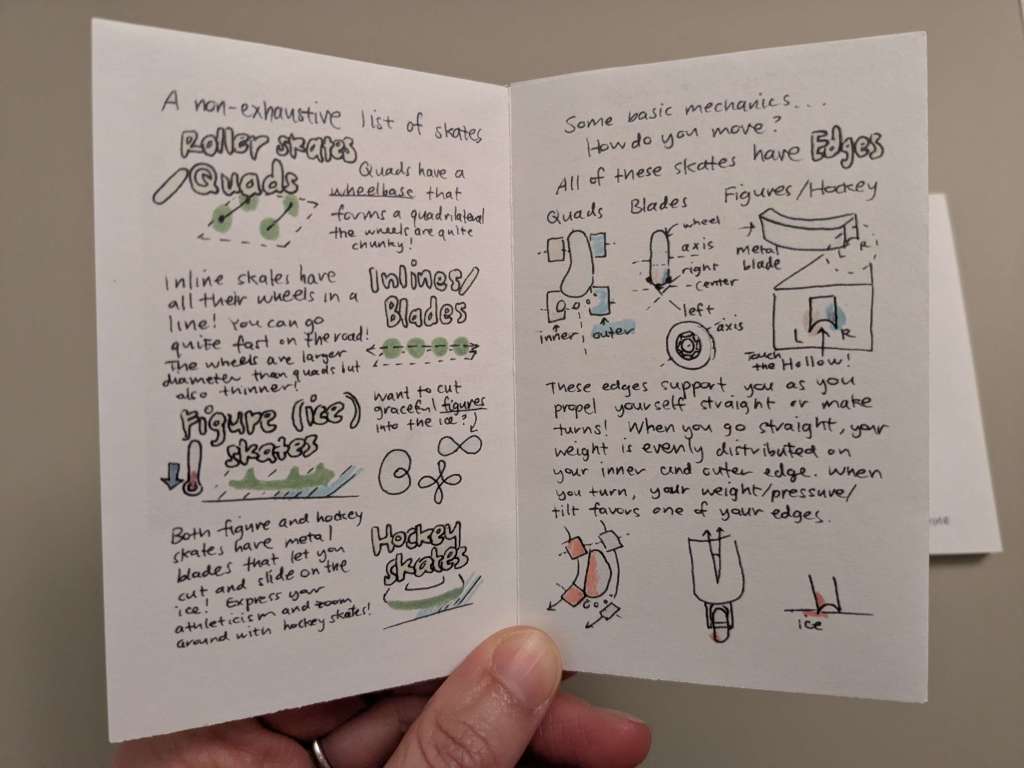 A non-exhaustive list of skates
Roller skates
/Quads
Quads have a
wheelbase that
forms a quadrilateral
the wheels are quite
chunky!
Inline skates have
all their wheels in a
line! You can go
quite fast on the road!
The wheels are larger
diameter than quads but
also thinner!
Inlines/
Blades
Figure (ice)
skates
want to cut
graceful figures
into the ice?
Both figure and hockey
skates have metal
blades that let you
cut and slide on the
ice! Express your
athleticism and zoom
around with hockey skates!
Hockey
skates
Some basic mechanics...
How do you move?
All of these skates have Edges
Quads
inner
outer
Blades
wheel
axis
right
center
left
axis
Figures/Hockey
metal
blade
L R
L R
Touch
the Hollow!
These edges support you as you
propel yourself straight or make
turns! When you go straight, your
weight is evenly distributed on
your inner and outer edge. When
you turn, your weight/pressure/
tilt favors one of your edges.
ice